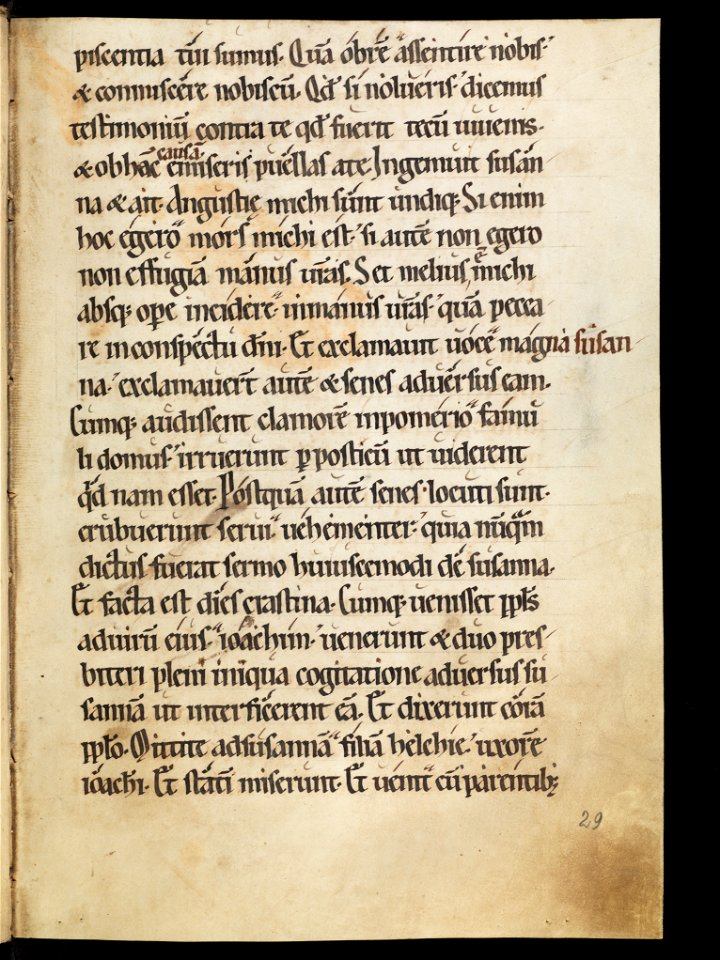 piscentia tui sumus. Quā obrē assentire nobis
& commiscere nobiscū. Qđ si nolueris dicemus
testimoniū contra te qđ fuerit tecū iuuenis.
& ob hāc causā emiseris puellas a te. Ingemuit susan
na & ait. Angustię michi sunt undiq;. Si enim
hoc egero mors michi est. si autē non egero
non effugiā manus ur̄as. Set melius ē michi
absq; ope incidere in manus ur̄as quā pecca
re in conspectu dn̄i. Et exclamauit uoce magna susan
na. exclamauer̄t autē & senes aduersus eam.
Cumq; audissent clamorē in pomerio famu
li domus irruerunt p posticū ut uiderent
qđ nam esset. Postquā autē senes locuti sunt.
erubuerunt serui uehementer. quia nūqm̄
dictus fuerat sermo huiuscemodi de susanna.
Et facta est dies crastina. Cumq; uenisset ppl̄s
ad uirū eius ioachim. uenerunt & duo pres
biteri pleni iniqua cogitatione aduersus su
sannā ut interficerent eā. Et dixerunt corā
ppl̄o. Mittite ad susannā filiā helchie uxorē
ioachi. Et statī miserunt. Et uenit cū parentib;
29